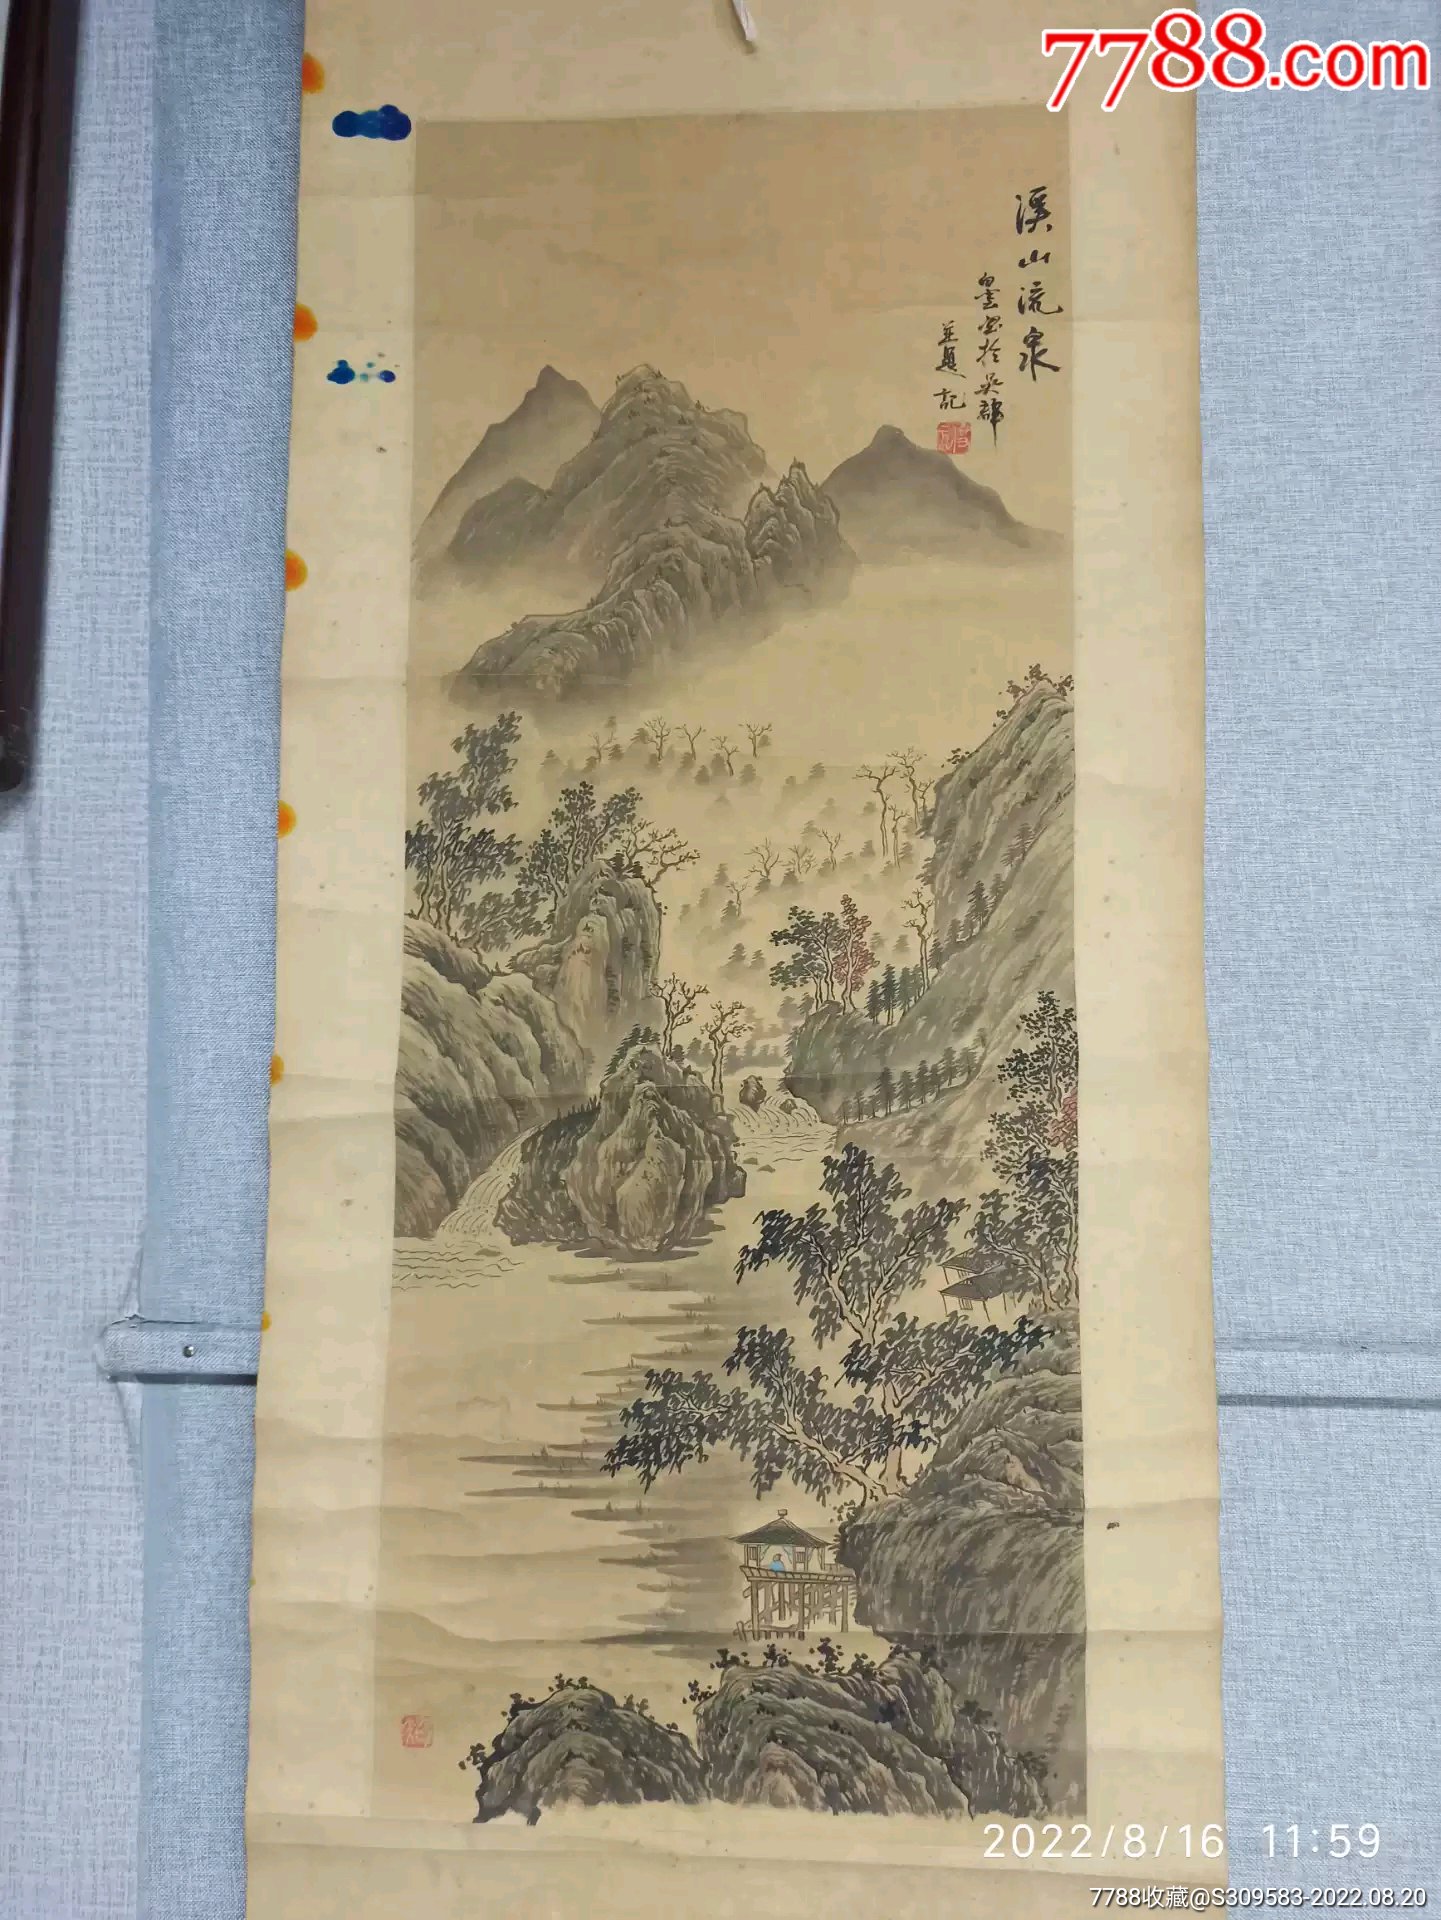 7788.com
溪山流泉
墨虫写於吴郡
並題記
2022/8/16 11:59
7788收藏@S309583-2022.08.20